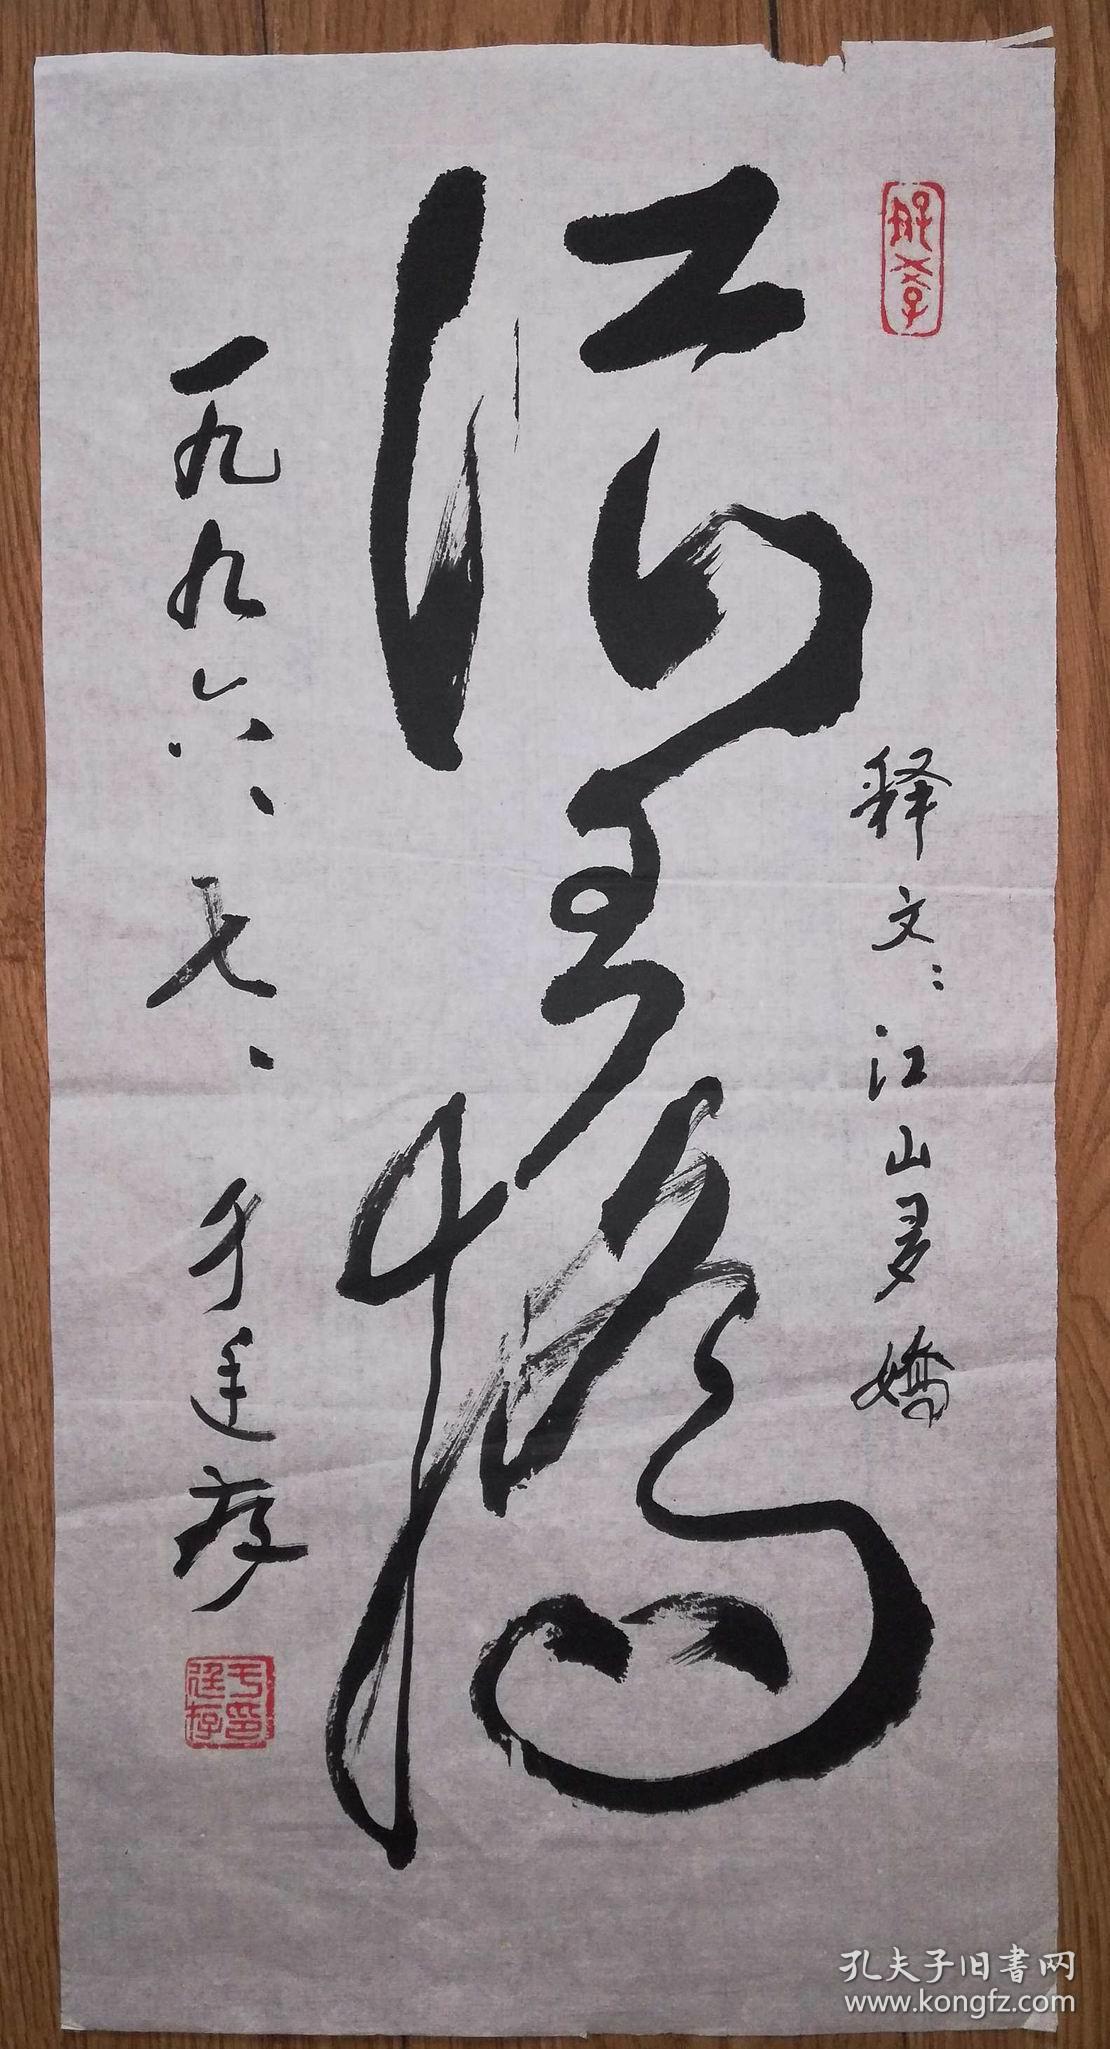 释文：江山多娇
江山多娇
一九九六、七、于廷存
孔夫子旧書网
www.kongfz.com